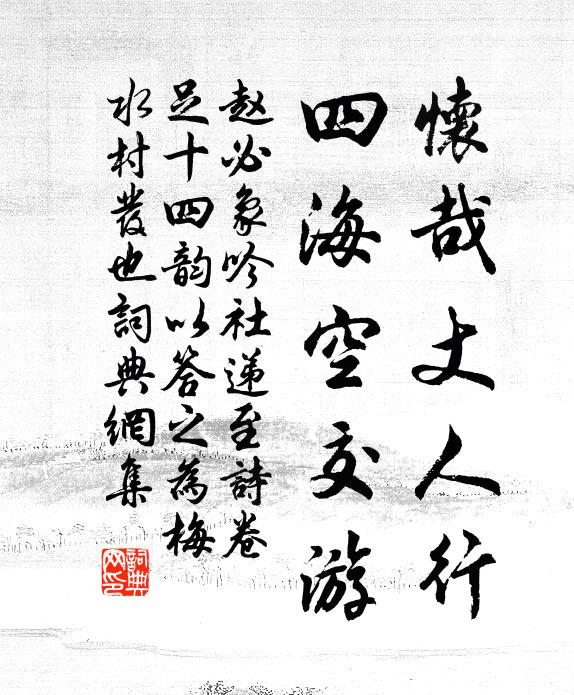 懷哉丈人行
四海空交游
趙必象吟社遞至詩卷
足十四韵以答之為梅
水村發也詞典網集
詞典
网印